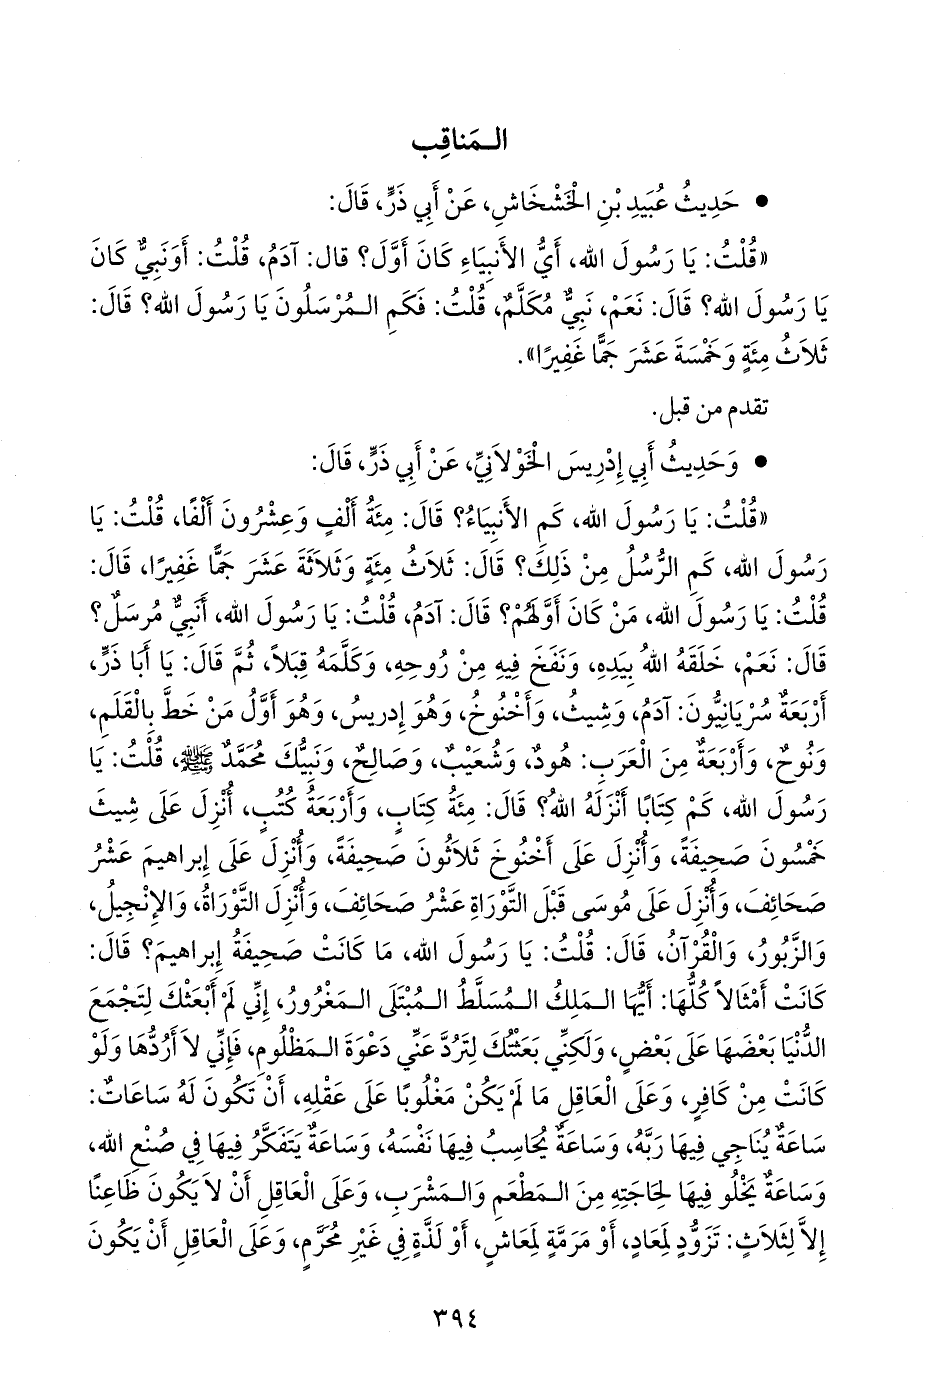 الـمَناقِب
• حَدِيثُ عُبَيدِ بْنِ الْخَشْخَاشِ، عَنْ أَبِي ذَرٍّ، قَالَ:
«قُلْتُ: يَا رَسُولَ الله، أَيُّ الأَنبِيَاءِ كَانَ أَوَّلَ؟ قال: آدَمُ، قُلْتُ: أَوَنَبِيٌّ كَانَ
يَا رَسُولَ الله؟ قَالَ: نَعَمْ، نَبِيٌّ مُكَلَّمٌ، قُلْتُ: فَكَمِ الـمُرْسَلُونَ يَا رَسُولَ الله؟ قَالَ:
ثَلَاثُ مِئَةٍ وَخَمْسَةَ عَشَرَ جَمًّا غَفِيرًا».
تقدم من قبل.
• وَحَدِيثُ أَبِي إِدْرِيسَ الخَوْلَانِيِّ، عَنْ أَبِي ذَرٍّ، قَالَ:
«قُلْتُ: يَا رَسُولَ الله، كَمِ الأَنبِيَاءُ؟ قَالَ: مِئَةُ أَلْفٍ وَعِشْرُونَ أَلْفًا، قُلْتُ: يَا
رَسُولَ الله، كَمِ الرُّسُلُ مِنْ ذَلِكَ؟ قَالَ: ثَلَاثُ مِئَةٍ وَثَلَاثَةَ عَشَرَ جَمًّا غَفِيرًا، قَالَ:
قُلْتُ: يَا رَسُولَ الله، مَنْ كَانَ أَوَّلَهُمْ؟ قَالَ: آدَمُ، قُلْتُ: يَا رَسُولَ الله، أَنَبِيٌّ مُرسَلٌ؟
قَالَ: نَعَمْ، خَلَقَهُ اللهُ بِيَدِهِ، وَنَفَخَ فِيهِ مِنْ رُوحِهِ، وَكَلَّمَهُ قِبَلاً، ثُمَّ قَالَ: يَا أَبَا ذَرٍّ،
أَرْبَعَةٌ سُرْيَانِيُّونَ: آدَمُ، وَشِيثُ، وَأَخْنُوخُ، وَهُوَ إِدرِيسُ، وَهُوَ أَوَّلُ مَنْ خَطَّ بِالْقَلَمِ،
وَنُوحٌ، وَأَرْبَعَةٌ مِنَ الْعَرَبِ: هُودٌ، وَشُعَيْبٌ، وَصَالِحٌ، وَنَبِيُّكَ مُحَمَّدٌ ﷺ، قُلْتُ: يَا
رَسُولَ الله، كَمْ كِتَابًا أَنْزَلَهُ اللهُ؟ قَالَ: مِئَةُ كِتَابٍ، وَأَرْبَعَةُ كُتُبٍ، أُنْزِلَ عَلَى شِيثَ
خَمْسُونَ صَحِيفَةً، وَأُنْزِلَ عَلَى أَخْنُوخَ ثَلَاثُونَ صَحِيفَةً، وَأُنْزِلَ عَلَى إِبراهِيمَ عَشْرُ
صَحَائِفَ، وَأُنْزِلَ عَلَى مُوسَى قَبْلَ التَّوْرَاةِ عَشْرُ صَحَائِفَ، وَأُنْزِلَ التَّوْرَاةُ، وَالإِنْجِيلُ،
وَالزَّبُورُ، وَالْقُرْآنُ، قَالَ: قُلْتُ: يَا رَسُولَ الله، مَا كَانَتْ صَحِيفَةُ إِبراهِيمَ؟ قَالَ:
كَانَتْ أَمْثَالاً كُلُّهَا: أَيُّهَا الـمَلِكُ الـمُسَلَّطُ الـمُبْتَلَى الـمَغْرُورُ، إِنِّي لَمْ أَبْعَثْكَ لِتَجْمَعَ
الدُّنْيَا بَعْضَهَا عَلَى بَعْضٍ، وَلَكِنِّي بَعَثْتُكَ لِتَرُدَّ عَنِّي دَعْوَةَ الـمَظْلُومِ، فَإِنِّي لَا أَرُدُّهَا وَلَوْ
كَانَتْ مِنْ كَافِرٍ، وَعَلَى الْعَاقِلِ مَا لَمْ يَكُنْ مَغْلُوبًا عَلَى عَقْلِهِ، أَنْ تَكُونَ لَهُ سَاعَاتٌ:
سَاعَةٌ يُنَاجِي فِيهَا رَبَّهُ، وَسَاعَةٌ يُحَاسِبُ فِيهَا نَفْسَهُ، وَسَاعَةٌ يَتَفَكَّرُ فِيهَا فِي صُنْعِ الله،
وَسَاعَةٌ يَخْلُو فِيهَا لِحَاجَتِهِ مِنَ الـمَطْعَمِ وَالـمَشْرَبِ، وَعَلَى الْعَاقِلِ أَنْ لَا يَكُونَ ظَاعِنًا
إِلاَّ لِثَلَاثٍ: تَزَوُّدٍ لِمَعَادٍ، أَوْ مَرَمَّةٍ لِمَعَاشٍ، أَوْ لَذَّةٍ فِي غَيْرِ مُحَرَّمٍ، وَعَلَى الْعَاقِلِ أَنْ يَكُونَ
٣٩٤